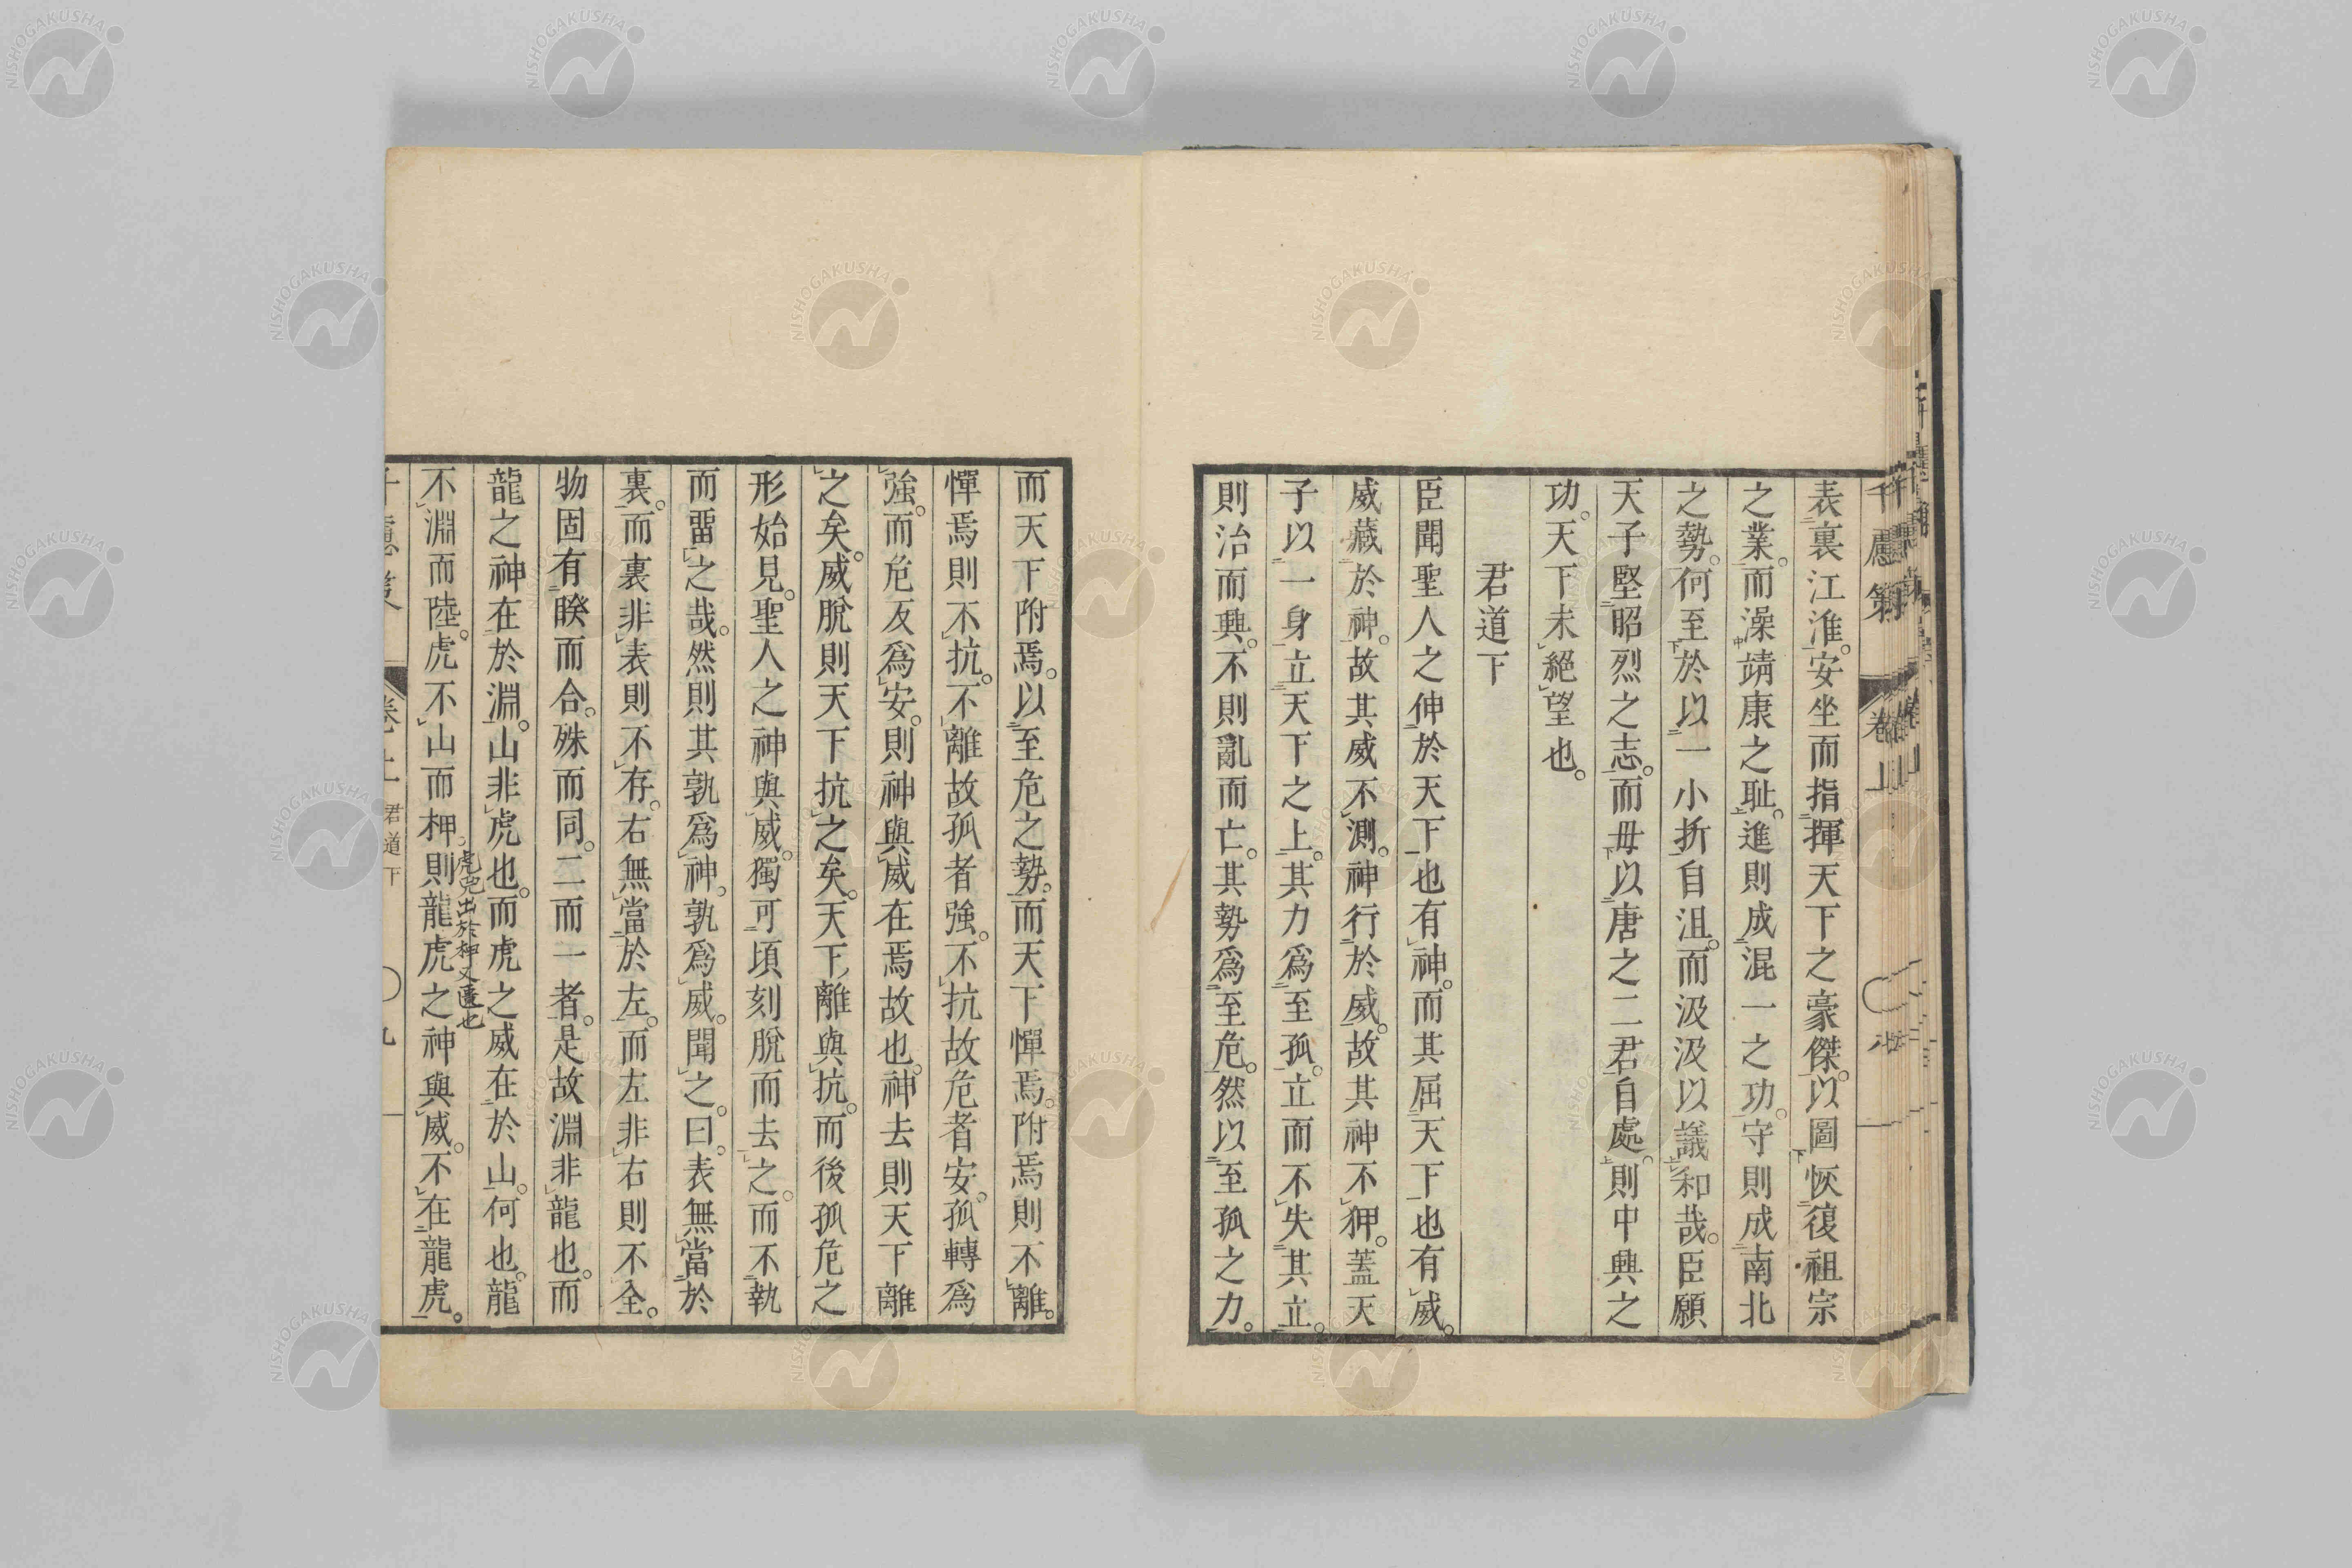 千慮策 卷上
表裏江淮。安坐而指揮天下之豪傑。以圖恢復祖宗
之業。而澡靖康之耻。進則成混一之功。守則成南北
之勢。何至於以一小折自沮。而汲汲以議和哉。臣願
天子堅昭烈之志。而毋以唐之二君自處。則中興之
功。天下未絕望也。
君道下
臣聞聖人之伸於天下也有神。而其屈天下也有威。
威藏於神。故其威不測。神行於威。故其神不狎。蓋天
子以一身立天下之上。其力爲至孤。立而不失其立。
則治而興。不則亂而亡。其勢爲至危。然以至孤之力。
而天下附焉。以至危之勢。而天下憚焉。附焉則不離。
憚焉則不抗。不離故孤者強。不抗故危者安。孤轉爲
強。而危反爲安。則神與威在焉故也。神去則天下離
之矣。威脫則天下抗之矣。天下離與抗。而後孤危之
形始見。聖人之神與威。獨可頃刻脫而去之。而不執
而畱之哉。然則其孰爲神。孰爲威。聞之。曰。表無當於
裏。而裏非表則不存。右無當於左。而左非右則不全。
物固有睽而合。殊而同。二而一者。是故淵非龍也。而
龍之神在於淵。山非虎也。而虎之威在於山。何也。龍
不淵而陸。虎不山而柙。則龍虎之神與威。不在龍虎。
虎兕出於柙又匱也
君道下
九
NISHOGAKUSHA